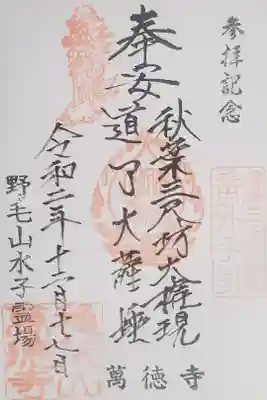 参拝記念
奉安
秋葉三尺坊大権現
道了大薩埵
令和二年十二月十七日
野毛山水子霊場
萬徳寺